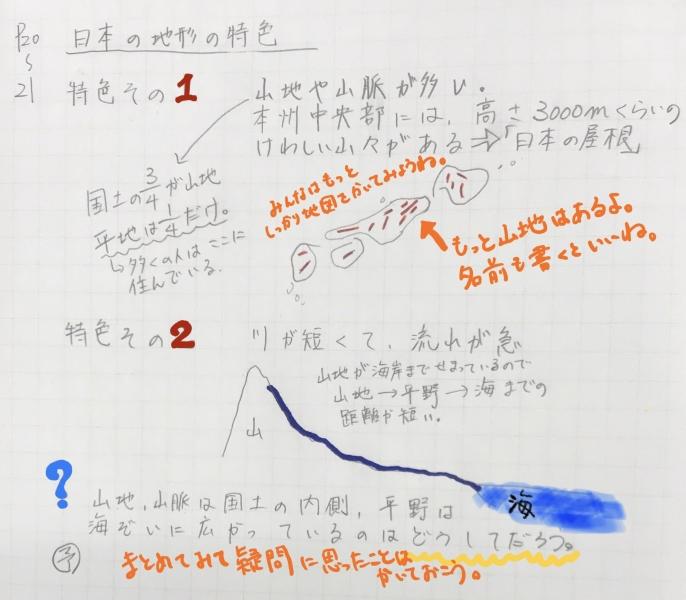 P20
〜
21
日本の地形の特色
特色その1
山地や山脈が多い。
本州中央部には、高さ3000mくらいの
けわしい山々がある⇒「日本の屋根」
国土の3/4が山地
平地は1/4だけ。
↳多くの人はここに
住んでいる.
みんなはもっと
しっかり地図をかいてみようね。
もっと山地はあるよ。
名前も書くといいね。
特色その2
川が短くて、流れが急
山地が海岸までせまっているので
山地→平野→海までの
距離が短い。
山
海
?
山地、山脈は国土の内側、平野は
海ぞいに広がっているのはどうしてだろう。
予
まとめてみて疑問に思ったことは
かいておこう。